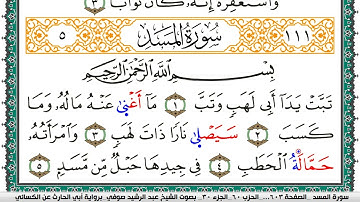 وَاسْتَغْفِرْهُ إِنَّهُۥ كَانَ تَوَّابًا ٣
١١١ سُورَةُ الْمَسَدِ ٥
بِسْمِ اللَّهِ الرَّحْمَٰنِ الرَّحِيمِ
تَبَّتْ يَدَآ أَبِي لَهَبٍ وَتَبَّ ١ مَآ أَغْنَىٰ عَنْهُ مَالُهُۥ وَمَا
كَسَبَ ٢ سَيَصْلَىٰ نَارًا ذَاتَ لَهَبٍ ٣ وَامْرَأَتُهُۥ
حَمَّالَةُ الْحَطَبِ ٤ فِي جِيدِهَا حَبْلٌ مِّن مَّسَدٍ ٥
سورة المسد الصفحة ٦٠٣... الحزب ٦٠ الجزء ٣٠ بصوت الشيخ عبد الرشيد صوفي برواية أبي الحارث عن الكسائي